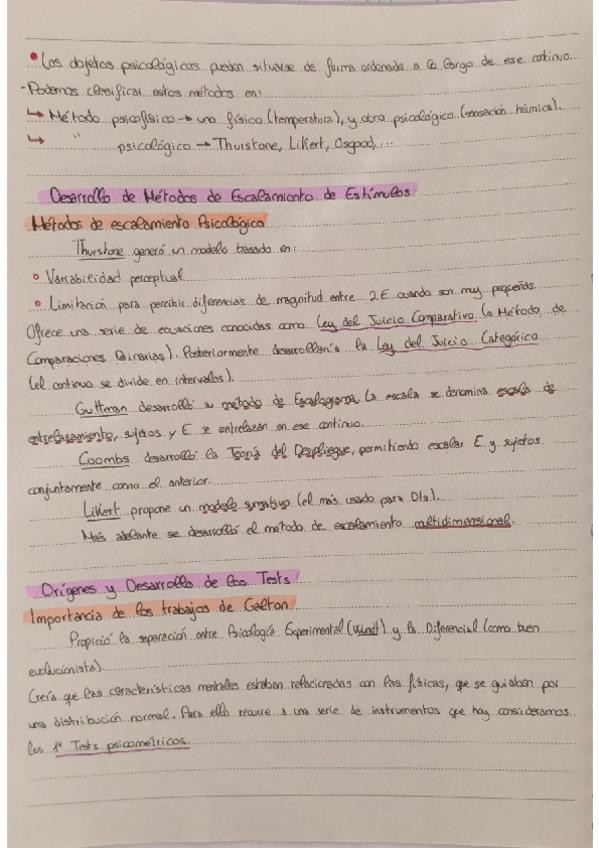 • Los objetos psicológicos pueden situarse de forma ordenada a lo largo de ese continuo.
- Podemos clasificar estos métodos en:
↳ Método psicofísico → una física (temperatura), y otra psicológica (sensación térmica).
↳ " psicológico → Thurstone, Likert, Osgood,...
Desarrollo de Métodos de Escalamiento de Estímulos
Métodos de escalamiento Psicológico
Thurstone generó un modelo basado en:
• Variabilidad perceptual
• Limitación para percibir diferencias de magnitud entre 2 E cuando son muy pequeñas
Ofrece una serie de ecuaciones conocidas como Ley del Juicio Comparativo (o Método de
Comparaciones Binarias). Posteriormente desarrollaría la Ley del Juicio Categórico
(el continuo se divide en intervalos).
Guttman desarrolló su método de Escalograma. La escala se denomina escala de
entrelazamiento, sujetos y E se entrelazan en ese continuo.
Coombs desarrolló la Teoría del Despliegue, permitiendo escalar E y sujetos
conjuntamente como el anterior.
Likert propone un modelo sumativo (el más usado para DIs).
Más adelante se desarrolló el método de escalamiento multidimensional.
Orígenes y Desarrollo de los Tests
Importancia de los trabajos de Galton
Propició la separación entre Psicología Experimental (Wundt) y la Diferencial (como buen
evolucionista).
Creía que las características mentales estaban relacionadas con las físicas, que se guiaban por
una distribución normal. Para ello recurre a una serie de instrumentos que hoy consideramos
los 1º Tests psicométricos.